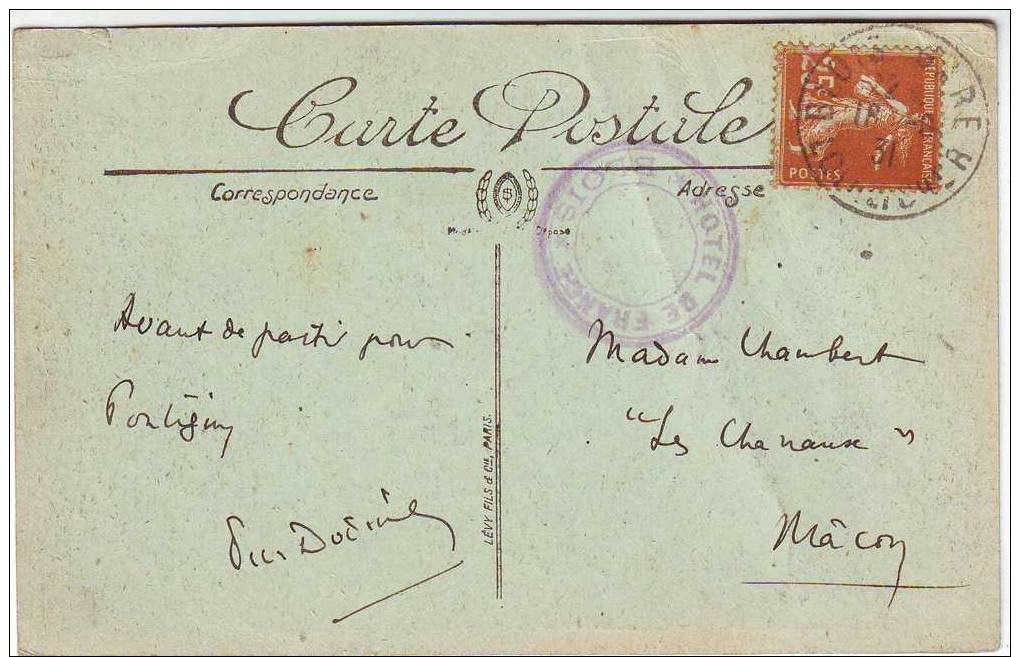 Carte Postale
Correspondance
Adresse
HOTEL DE FRANCE * BLOIS *
RÉPUBLIQUE FRANÇAISE
POSTES
31
Avant de partir pour
Pontigny
LÉVY FILS & Cie, PARIS.
Madame Chambert
"Les Chanaux"
Mâcon